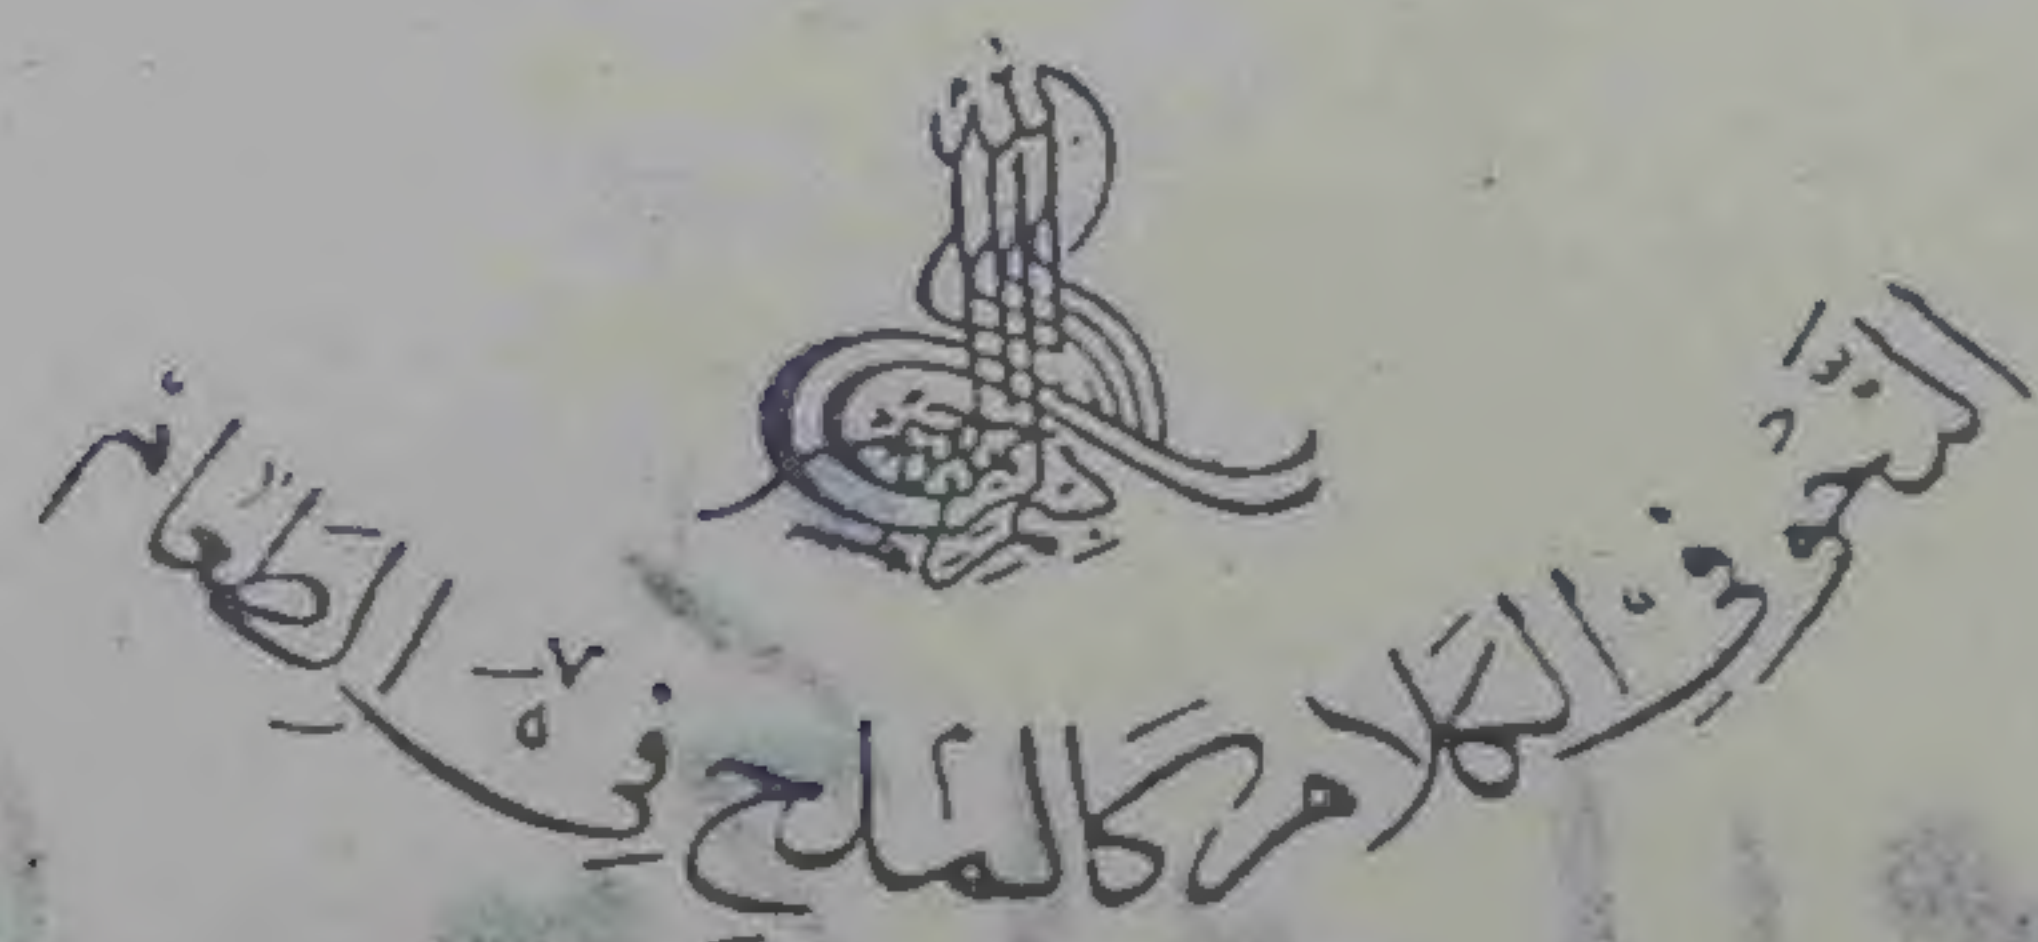 النحو فی الکلام کالملح فی الطعام